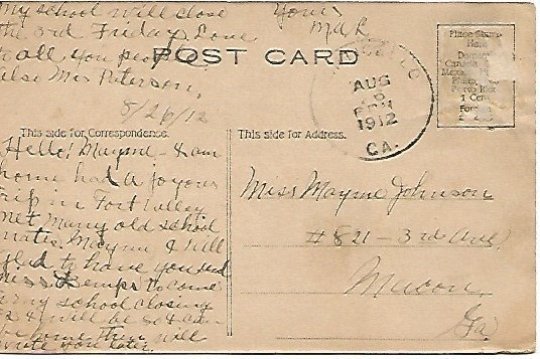 My school will close
the 3rd Friday. Love
to all you people
also Mis Peterson.
8/26/12
Yours
MAR
POST CARD
Place Stamp
Here
AUG
1912
GA.
This side for Correspondence.
Hello! Mayme - I am
home had a joyous
trip in Fort Valley
met many old school
mates. Mayme I will
glad to have you and
Miss Kemps to come
my school closing
I will be
come then will
write you later.
This side for Address.
Miss Mayme Johnson
#821 - 3rd Ave,
Macon,
Ga.